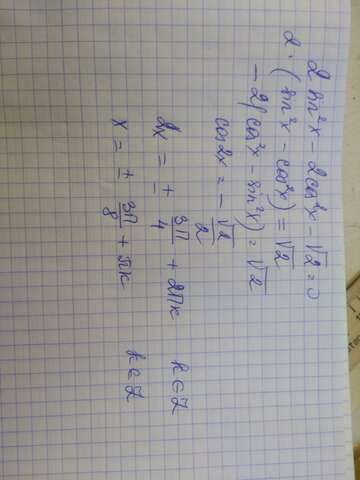 2 sin²x - 2cos²x - √2 = 0
2 · (sin²x - cos²x) = √2
- 2(cos²x - sin²x) = √2
cos2x = - √2/2
2x = ± 3π/4 + 2πk k ∈ Z
x = ± 3π/8 + πk k ∈ Z